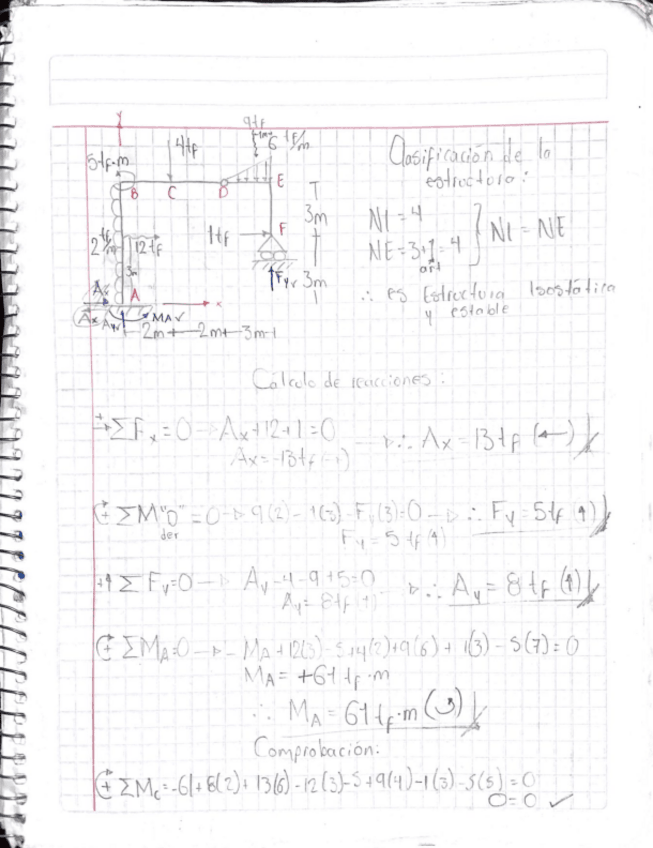 y
9tf
6 tf/m
4tf
5tf·m
B
C
D
E
3m
1tf
F
2 tf/m
12tf
3m
Fy
3m
A
x
Ax
Ay
MA
2m
2m
3m
Clasificación de la
estructura:
NI = 4
NE = 3+1 = 4
art
NI = NE
∴ es Estructura Isostática
y estable
Cálculo de reacciones:
+→ΣFx=0 → Ax+12+1=0 → ∴ Ax = 13 tf (←)
Ax=-13tf
ΣM"D"=0 → 9(2) - 1(3) - Fy(3)=0 → ∴ Fy = 5tf (↑)
der
Fy = 5 tf (↑)
+↑ΣFy=0 → Ay-4-9+5=0 → ∴ Ay = 8tf (↑)
Ay = 8tf (↑)
ΣMA=0 → -MA+12(3)-5+4(2)+9(6)+1(3)-5(7)=0
MA = +61 tf·m
∴ MA = 61 tf·m (↺)
Comprobación:
ΣMc=-61+8(2)+13(6)-12(3)-5+9(4)-1(3)-5(5)=0
0=0 ✓